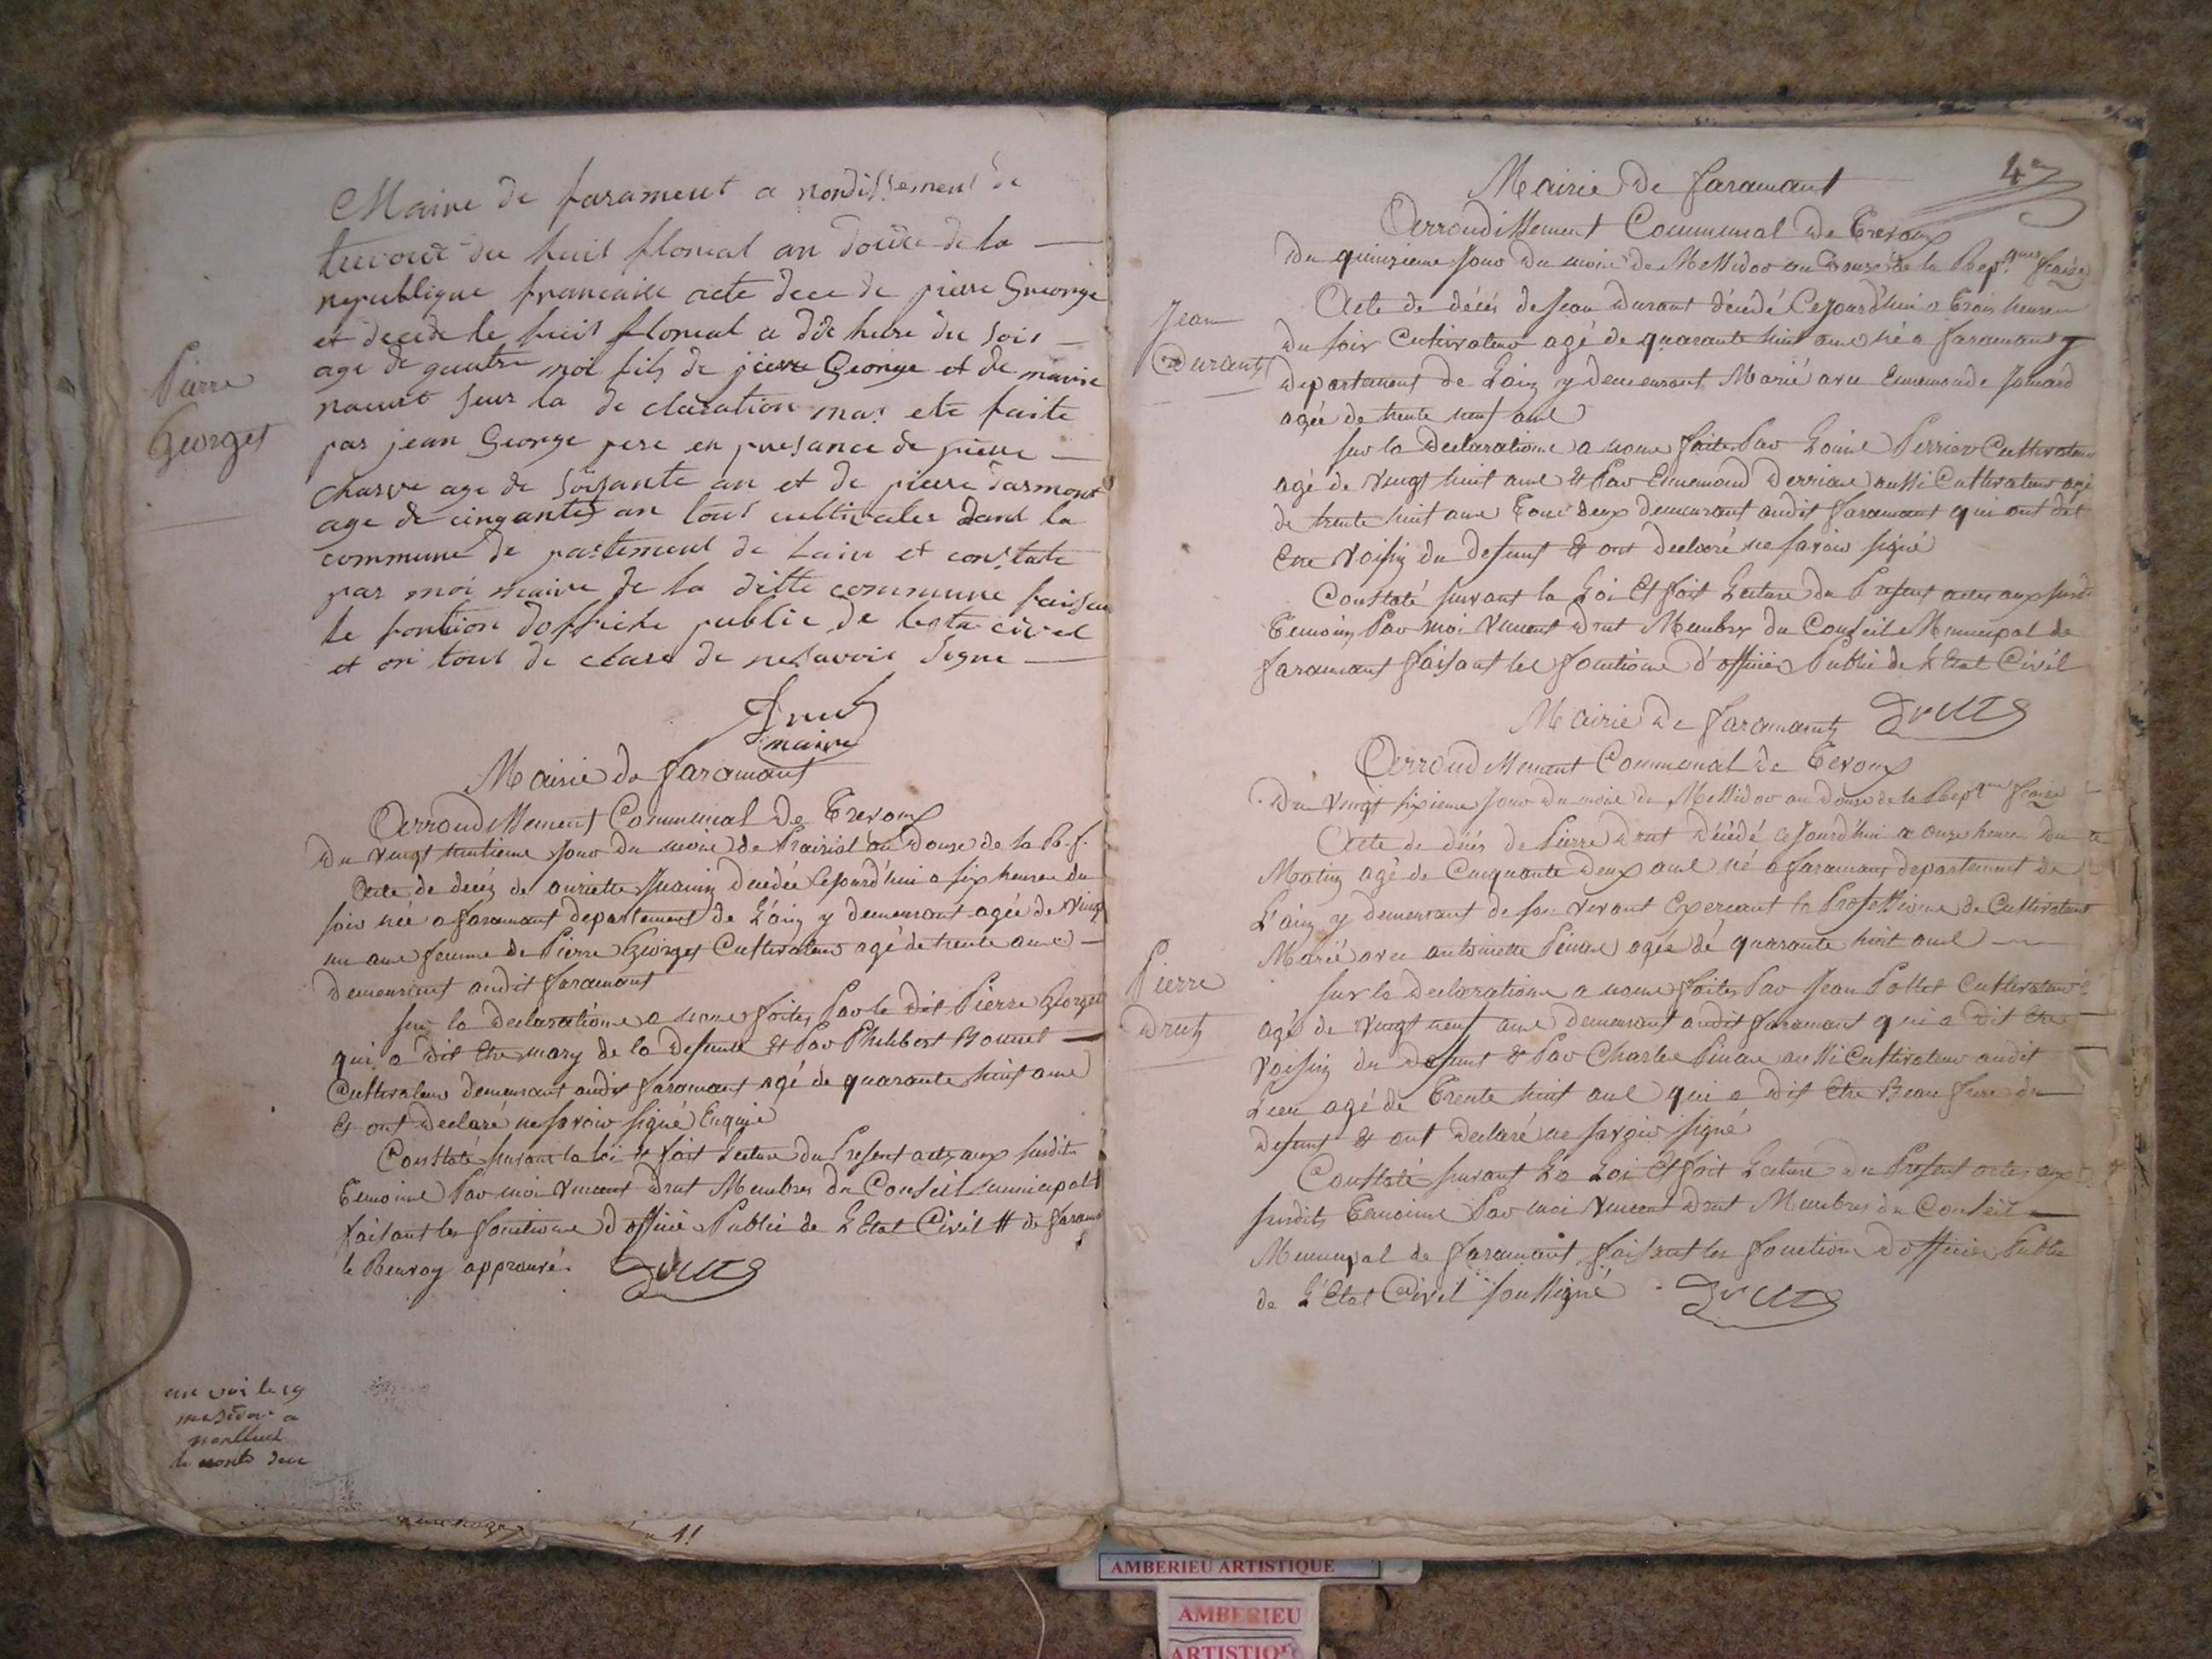 Maire de farament a rondissement de
trevout du huit floreal an douze de la
republique francaise acte dece de pierre George
et decede le huit floreal a dix heure du soir
age de quatre moi fils de pierre George et de marie
sur la de claration ma ete faite
par jean George pere en presance de pierre
charve age de soisante an et de pierre
age de cinquante an tous dans la
commune de partement de lain et constate
par moi maire de la ditte commune faisan
le fontion doffiche public de lesta civel
et on tout de clare de ne savoir signe
Pierre
Georges
Drut
maire
Mairie de faramant
Arrondissement Communal de Trevoux
Du vingt huitieme jour du mois de Prairial an Douse de la R. f.
Acte de decés de decedée Cejourd'hui a six heures du
soir née a faramant departement de L'ain y demeurant agée de vingt
un ans femme de Pierre Georges Cultivateur agé de trente ans
demeurant audit faramant
sur la declaration a nous faites Par le dit Pierre Georges
qui a dit Etre mary de la defunte Et Par Philibert Bonnet
Cultivateur demeurant audit faramant agé de quarante huit ans
Et ont declaré ne savoir signé Enquie
Constaté suivant la loi Et fait Lecture du Present acte aux susdits
Temoins Par moi vincent Drut Membres du Conseil municipal
faisant les fonctions d'officié Public de L'Etat Civil # de faramt
le Renvoy approuvé. Drut
le 19
mesidor a
dece
11
47
Mairie de faramant
Arrondissement Communal de Trevoux
Du quinzieme jour du mois de Messidor an Douse de la Repque fraise
Jean
Durant
Acte de décés de Jean Durant décedé Cejourd'hui a Trois heures
du soir Cultivateur agé de quarante huit ans né a faramant
departement de L'ain y demeurant Marié avec Ennemonde
agée de trente neuf ans
sur la declaration a nous faites Par Perrier Cultivateur
agé de vingt huit ans Et Par Ennemond aussi Cultivateur agé
de trente huit ans Tous deux demeurant audit faramant qui ont dit
Etre voisin du defunt Et ont declaré ne savoir signé
Constaté suivant la Loi Et fait Lecture du Present actes aux susd.
Temoins Par moi vincent Drut Membres du Conseil Municipal de
faramant faisant les fonctions d'officier Public de L'Etat Civil
Mairie de faramant Drut
Arrondissement Communal de Tevoux
Du vingt sixieme jour du mois de Messidor an Douse de la Repque fraise
Acte de décés de Pierre Drut Décédé ce jourd'hui a onze heures du
Matin agé de Cinquante Deux ans né a faramant departement de
L'ain y demeurant de son vivant Exercant la Profession de Cultivateur
Marié avec antoinette agée de quarante huit ans
Pierre
Drut
sur la declaration a nous faites Par Jean Pollet Cultivateur
agé de vingt neuf ans demeurant audit faramant qui a dit Etre
voisin du defunt Et Par Charles aussi Cultivateur audit
Lieu agé de Trente huit ans qui a dit Etre Beau frere du
defunt Et ont declaré ne savoir signé
Constaté suivant La Loi Et fait Lecture du Present actes aux
susdits Temoins Par moi vincent Drut Membres du Conseil
Municipal de faramant faisant les fonctions d'officier Public
de L'Etat Civil soussigné Drut
AMBERIEU ARTISTIQUE
AMBERIEU
ARTISTIQUE